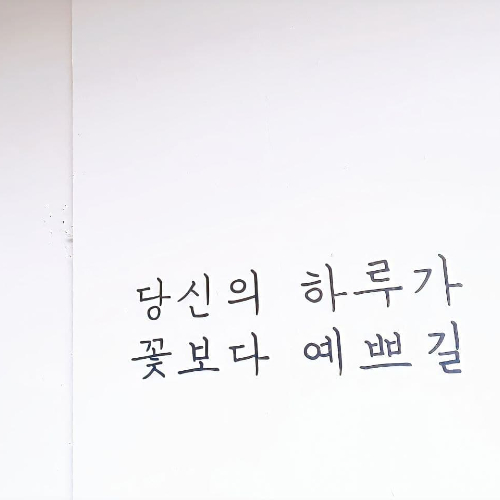 당신의 하루가
꽃보다 예쁘길